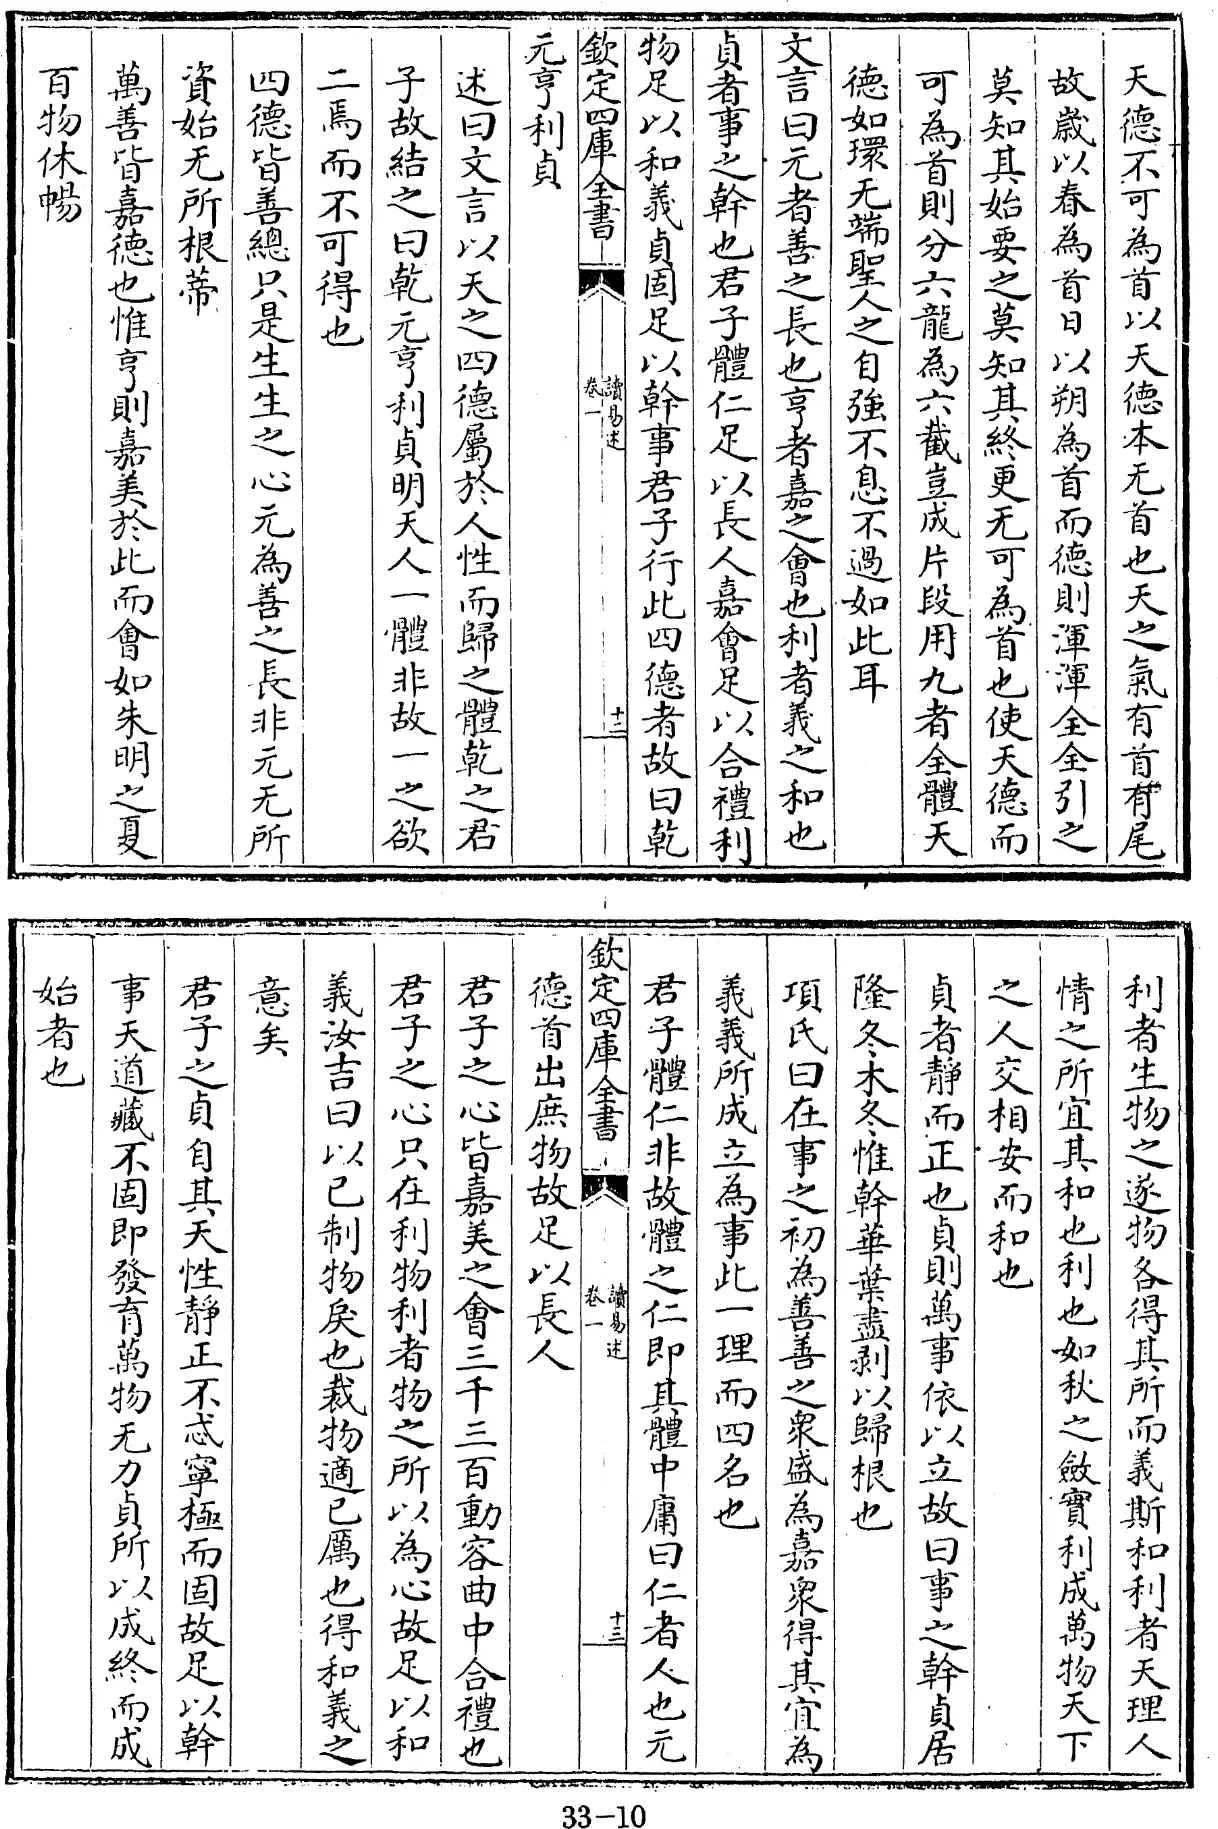 天德不可為首以天德本无首也天之氣有首有尾
故歲以春為首日以朔為首而德則渾渾全全引之
莫知其始要之莫知其終更无可為首也使天德而
可為首則分六龍為六截豈成片段用九者全體天
德如環无端聖人之自強不息不過如此耳
文言曰元者善之長也亨者嘉之會也利者義之和也
貞者事之幹也君子體仁足以長人嘉會足以合禮利
物足以和義貞固足以幹事君子行此四德者故曰乾
欽定四庫全書
讀易述
卷一
十二
元亨利貞
述曰文言以天之四德屬於人性而歸之體乾之君
子故結之曰乾元亨利貞明天人一體非故一之欲
二焉而不可得也
四德皆善總只是生生之心元為善之長非元无所
資始无所根蒂
萬善皆嘉德也惟亨則嘉美於此而會如朱明之夏
百物休暢
利者生物之遂物各得其所而義斯和利者天理人
情之所宜其和也利也如秋之斂實利成萬物天下
之人交相安而和也
貞者靜而正也貞則萬事依以立故曰事之幹貞居
隆冬木冬惟幹華葉盡剥以歸根也
項氏曰在事之初為善善之衆盛為嘉衆得其宜為
義義所成立為事此一理而四名也
君子體仁非故體之仁即其體中庸曰仁者人也元
欽定四庫全書
讀易述
卷一
十三
德首出庶物故足以長人
君子之心皆嘉美之會三千三百動容曲中合禮也
君子之心只在利物利者物之所以為心故足以和
義汝吉曰以己制物戾也裁物適己厲也得和義之
意矣
君子之貞自其天性靜正不忒寧極而固故足以幹
事天道藏不固即發育萬物无力貞所以成終而成
始者也
33-10